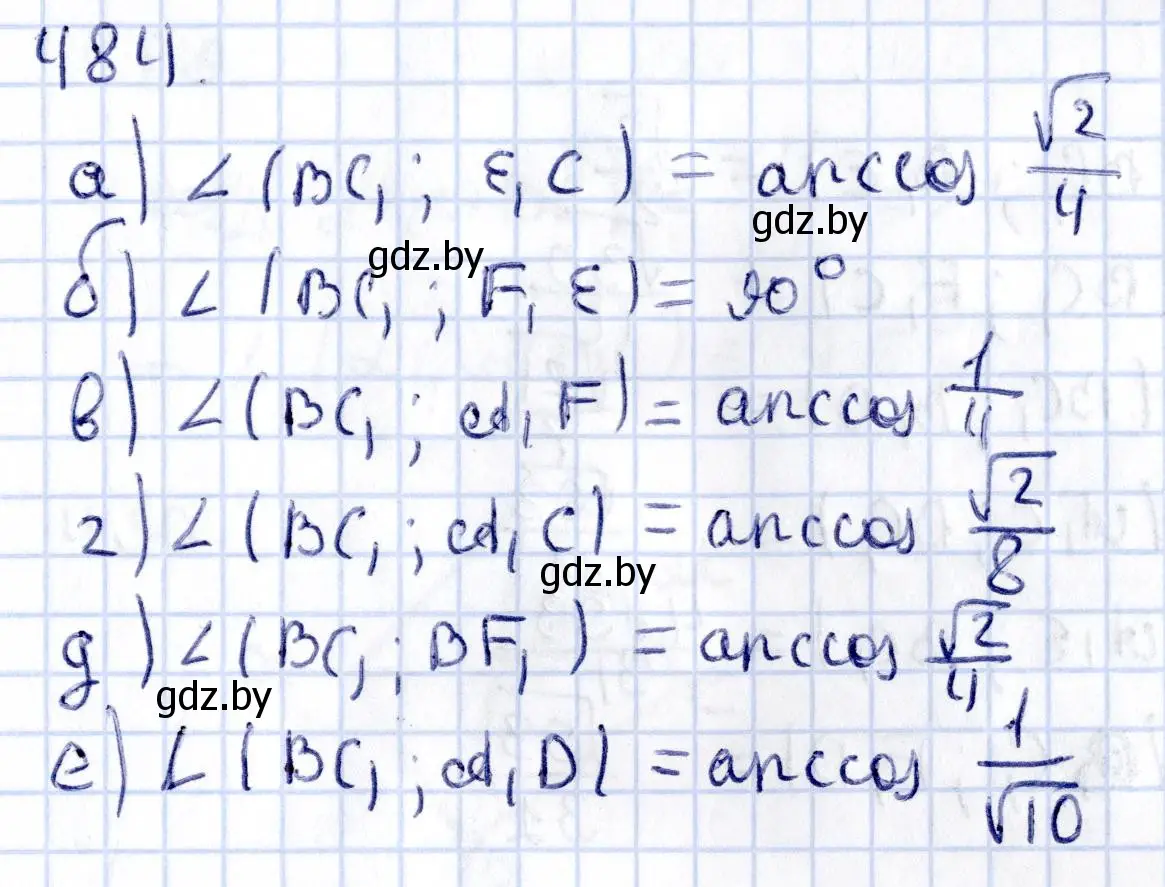 484.
а) ∠(BC₁; E₁C) = arccos √2/4
gdz.by
б) ∠(BC₁; F₁E) = 90°
gdz.by
в) ∠(BC₁; A₁F) = arccos 1/4
г) ∠(BC₁; A₁C) = arccos √2/8
gdz.by
д) ∠(BC₁; BF₁) = arccos √2/4
gdz.by
е) ∠(BC₁; A₁D) = arccos 1/√10